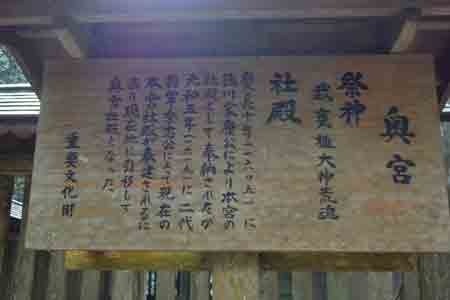 奥宮
祭神
武甕槌大神荒魂
社殿
慶長十年(一六〇五)に
徳川家康公により本宮の
社殿として奉納されたが
元和五年(一六一九)に二代
将軍秀忠公により現在の
本宮社殿が奉建されるに
当り現在地に引移して
奥宮社殿となった
重要文化財